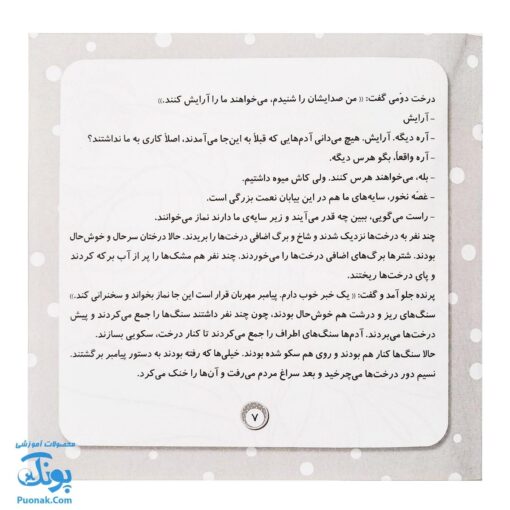 درخت دوّمی گفت: « من صدایشان را شنیدم، می‌خواهند ما را آرایش کنند.»
- آرایش
- آره دیگه. آرایش. هیچ می‌دانی آدم‌هایی که قبلاً به این‌جا می‌آمدند، اصلاً کاری به ما نداشتند؟
- آره واقعاً، بگو هرس دیگه.
- بله، می‌خواهند هرس کنند. ولی کاش میوه داشتیم.
- غصّه نخور، سایه‌های ما هم در این بیابان نعمت بزرگی است.
- راست می‌گویی، ببین چه قدر می‌آیند و زیر سایه‌ی ما دارند نماز می‌خوانند.
چند نفر به درخت‌ها نزدیک شدند و شاخ و برگ اضافی درخت‌ها را بریدند. حالا درختان سرحال و خوش‌حال
بودند. شترها برگ‌های اضافی درخت‌ها را می‌خوردند. چند نفر هم مشک‌ها را پر از آب برکه کردند
و پای درخت‌ها ریختند.
پرنده جلو آمد و گفت: « یک خبر خوب دارم. پیامبر مهربان قرار است این جا نماز بخواند و سخنرانی کند.»
سنگ‌های ریز و درشت هم خوش‌حال بودند، چون چند نفر داشتند سنگ‌ها را جمع می‌کردند و پیش
درخت‌ها می‌بردند. آدم‌ها سنگ‌های اطراف را جمع می‌کردند تا کنار درخت، سکویی بسازند.
حالا سنگ‌ها کنار هم بودند و روی هم سکو شده بودند. خیلی‌ها که رفته بودند به دستور پیامبر برگشتند.
نسیم دور درخت‌ها می‌چرخید و بعد سراغ مردم می‌رفت و آن‌ها را خنک می‌کرد.
۷
محصولات آموزشی
پونک
Puonak.Com